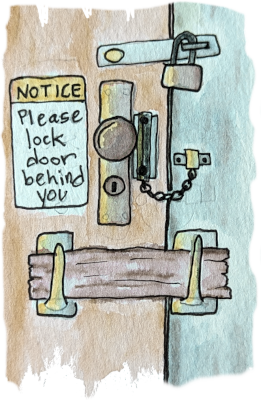 NOTICE
Please
lock
door
behind
you